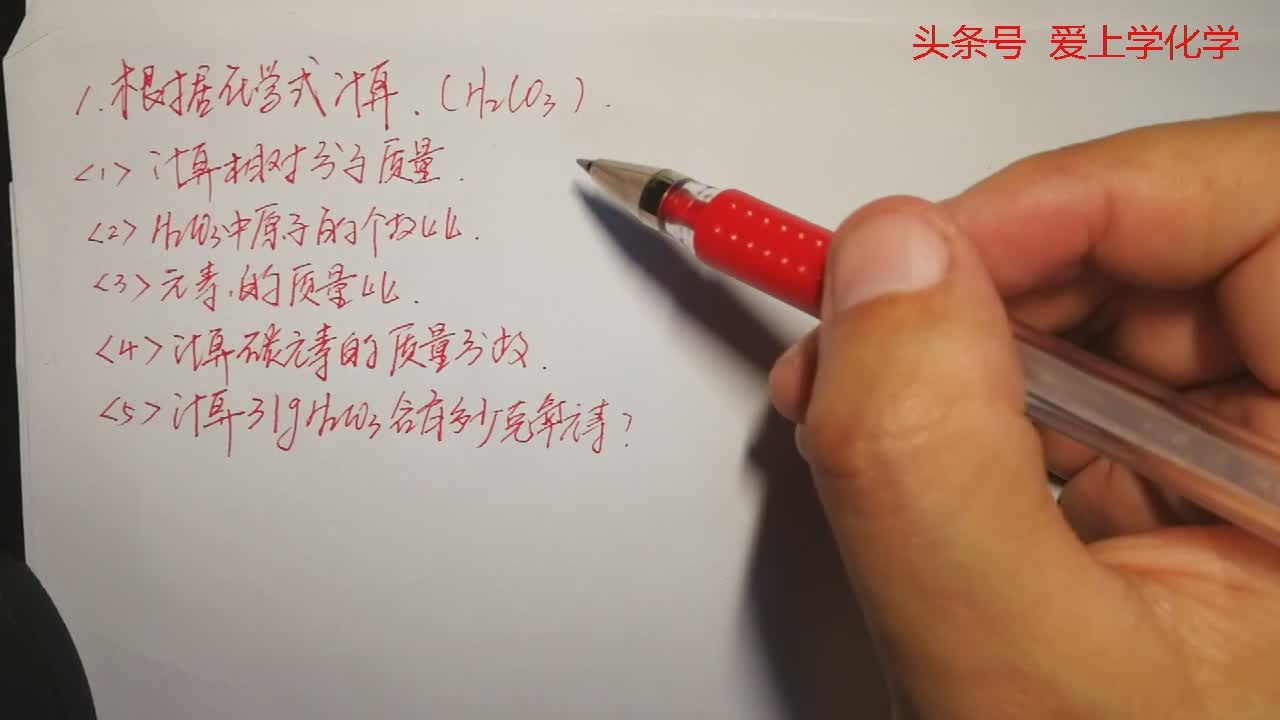 头条号 爱上学化学
1. 根据化学式计算. (H₂CO₃).
<1> 计算相对分子质量.
<2> H₂CO₃中原子的个数比.
<3> 元素的质量比.
<4> 计算碳元素的质量分数.
<5> 计算31g H₂CO₃含有多少克碳元素?